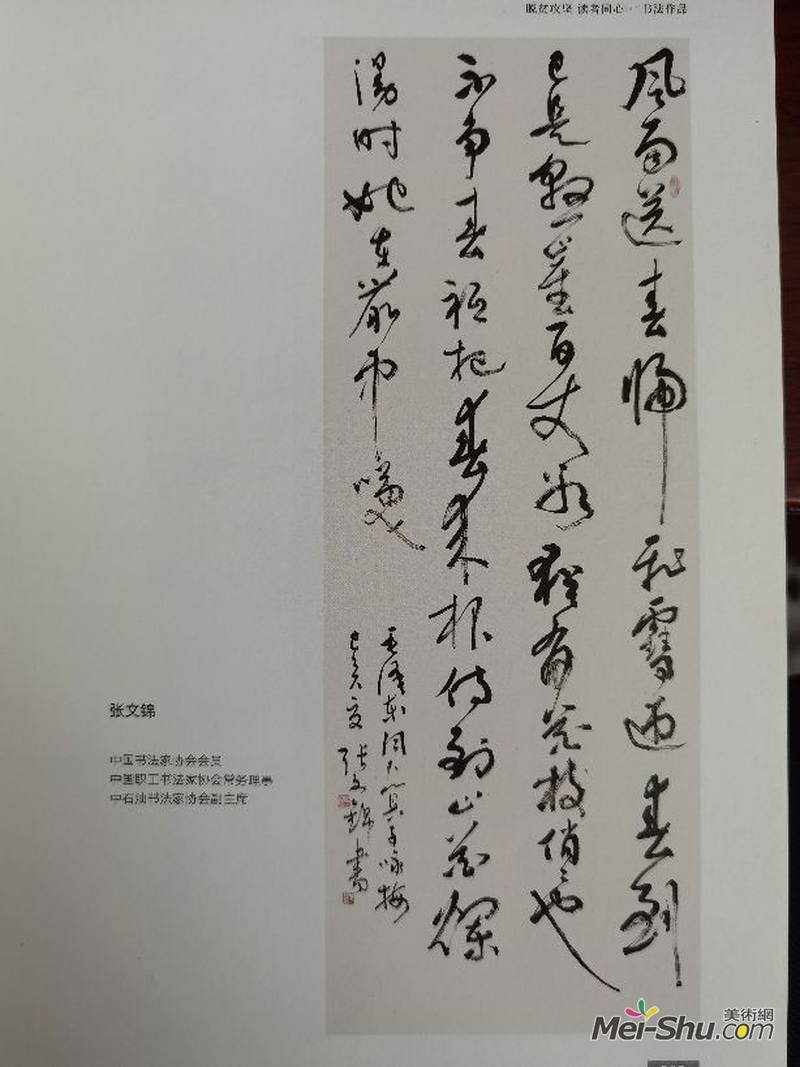 脱贫攻坚 读者同心 · 书法作品
風雨送春歸飛雪迎春到
已是懸崖百丈冰猶有花枝俏俏也
不爭春祇把春來報待到山花爛
漫時她在叢中笑
毛澤東詞卜算子咏梅
己亥夏張文錦書
张文锦
中国书法家协会会员
中国职工书法家协会常务理事
中石油书法家协会副主席
美術網
Mei-Shu.com